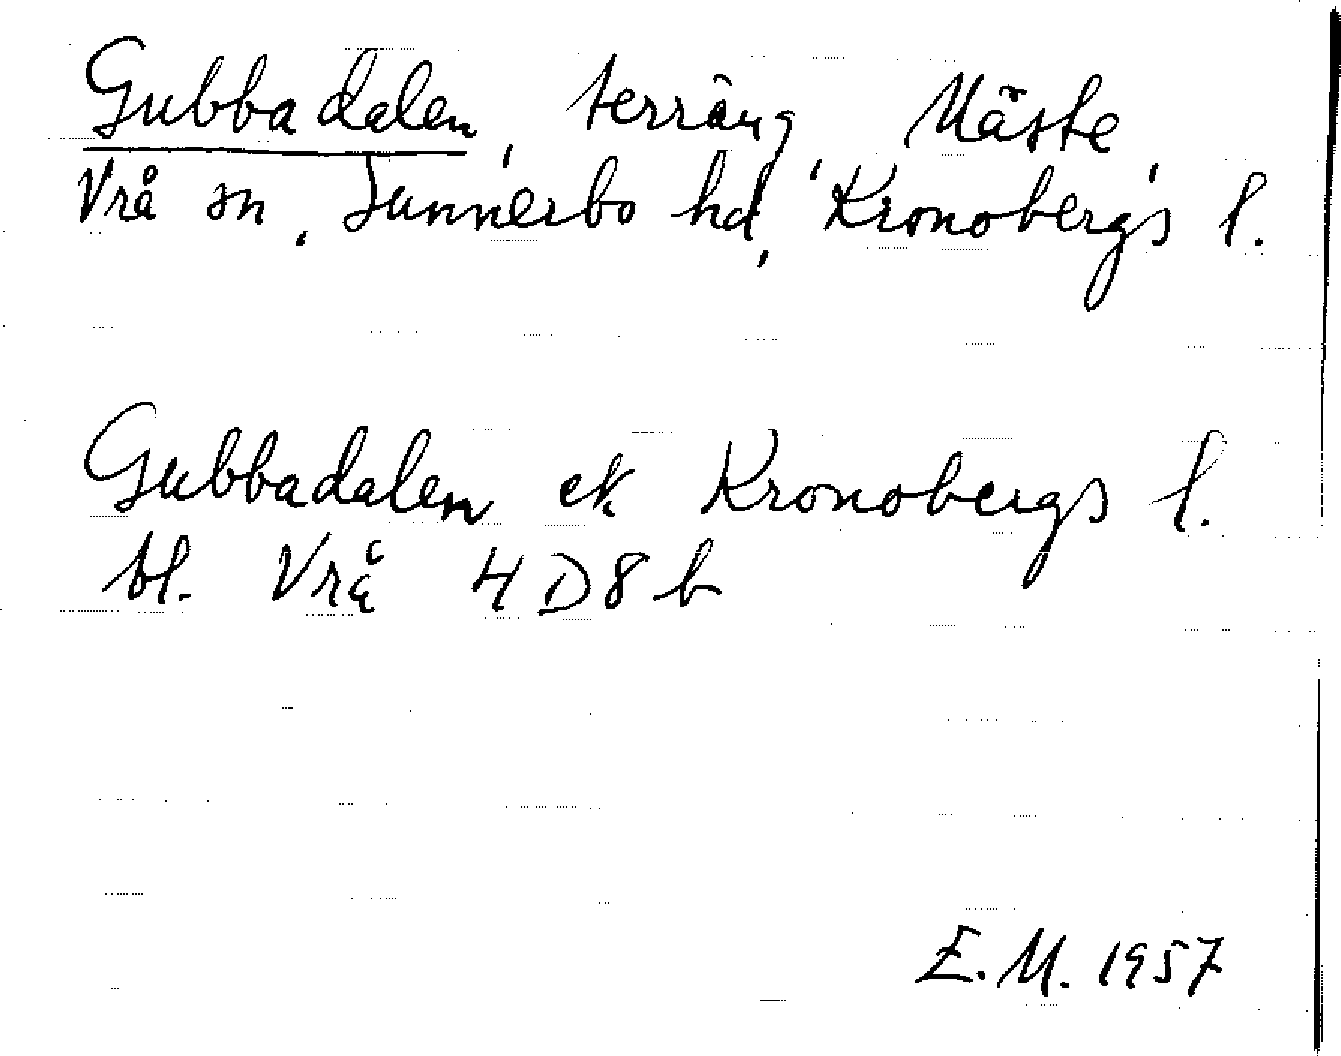 Gubbadalen, terräng, Mäste,
Vrå sn, Sunnerbo hd, Kronobergs l.
Gubbadalen ek Kronobergs l.
bl. Vrå 4D8b
E.M. 1957